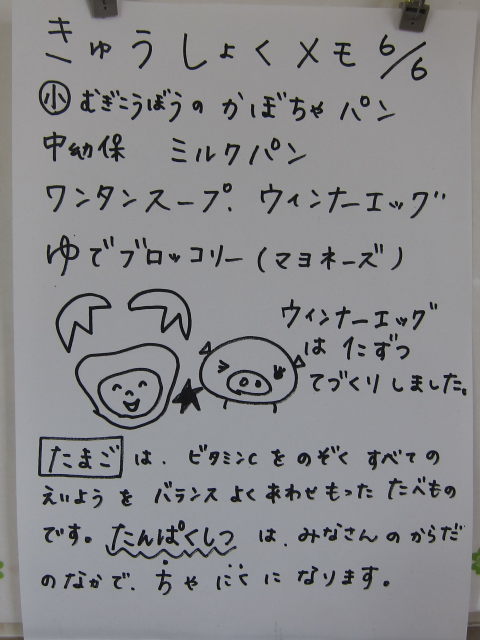 きゅうしょくメモ 6/6
小 むぎこうぼうの かぼちゃ パン
中幼保 ミルクパン
ワンタンスープ. ウィンナーエッグ
ゆでブロッコリー(マヨネーズ)
ウィンナーエッグ
は 1こずつ
てづくりしました。
たまご は、ビタミンCを のぞく すべての
えいようを バランスよく あわせもった たべもの
です。たんぱくしつ は、みなさんの からだ
のなかで、ちや にくに なります。